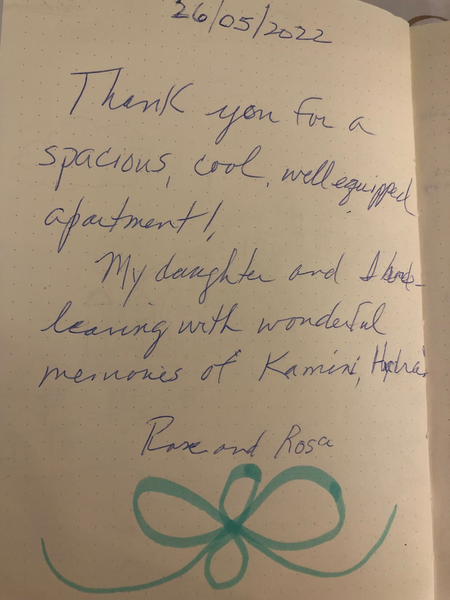 26/05/2022
Thank you for a
spacious, cool, well equipped
apartment!
My daughter and I
leaving with wonderful
memories of Kamini, Hydra
and Rosa